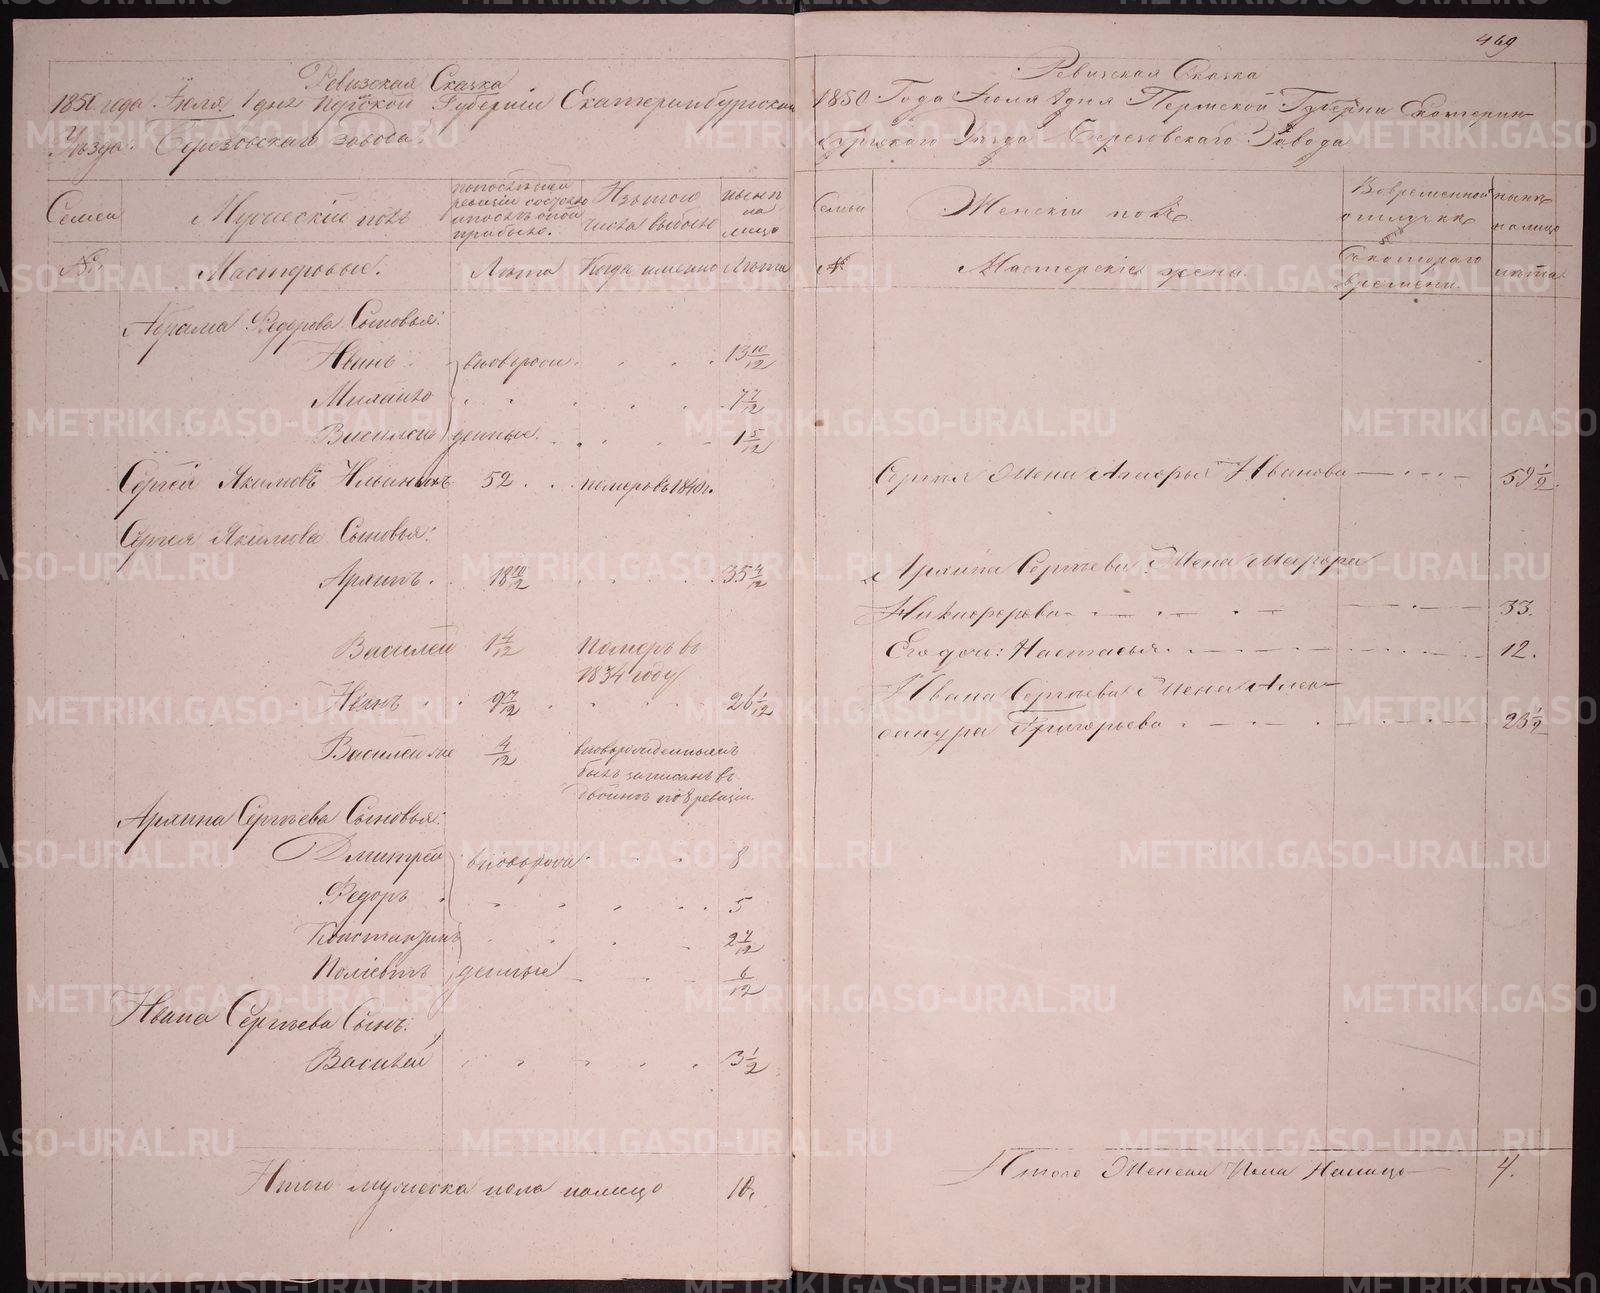 Ревизская Сказка
1850 года Июля 1 дня Пермской Губернiи Екатеринбургскаго
Уезда Березовскаго завода
Семьи
Мужескiй полъ
по последней
ревизiи состояло
и после оной
прибыло.
Изъ того
числа выбыло
ныне
на
лицо
№
Мастеровые.
Лета
Когда именно
Лета
Абрама Федорова Сыновья:
Иванъ вновьрож 13 10/12
Михайло 7 7/12
Василей денные. 1 5/12
Сергей Якимовъ Ильиныхъ 52 померъ въ 1840 г.
Сергея Якимова Сыновья:
Архипъ 18 10/12 35 4/12
Василей 1 4/12 Померъ въ
1834 году
Иванъ 9 7/12 26 1/12
Василей же 4/12 вновьрожденнымъ
былъ записанъ въ
двойне по 8 ревизiи.
Архипа Сергеева Сыновья:
Дмитрей вновьрож 8
Федоръ 5
Константинъ 2 7/12
Полiевтъ денные 6/12
Ивана Сергеева Сынъ:
Василей 3 1/2
Итого мужеска пола налицо 10.
469
Ревизская Сказка
1850 Года Июля 1 дня Пермской Губернiи Екатерин-
бургскаго Уезда Березовскаго Завода
Семьи
Женскiй полъ.
Во временной
отлучке
съ котораго
времени.
ныне
налицо
№
Мастерскiе жены.
лета
Сергея Жена Иванова 59 1/2
Архипа Сергеева Жена
Никифорова 33.
Его дочь: Настасья 12.
Ивана Сергеева Жена Алек-
сандра Григорьева 23 1/2
Итого Женска Пола Налицо 4.
METRIKI.GASO-URAL.RU